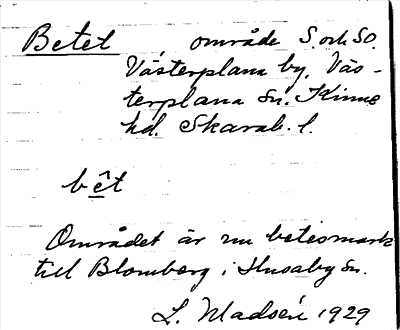 Betet område S. och SO.
Västerplana by, Väs-
terplana sn. Kinne
hd. Skarab. l.
bêt
Området är nu betesmark
till Blomberg i Husaby sn.
L. Madsén 1929